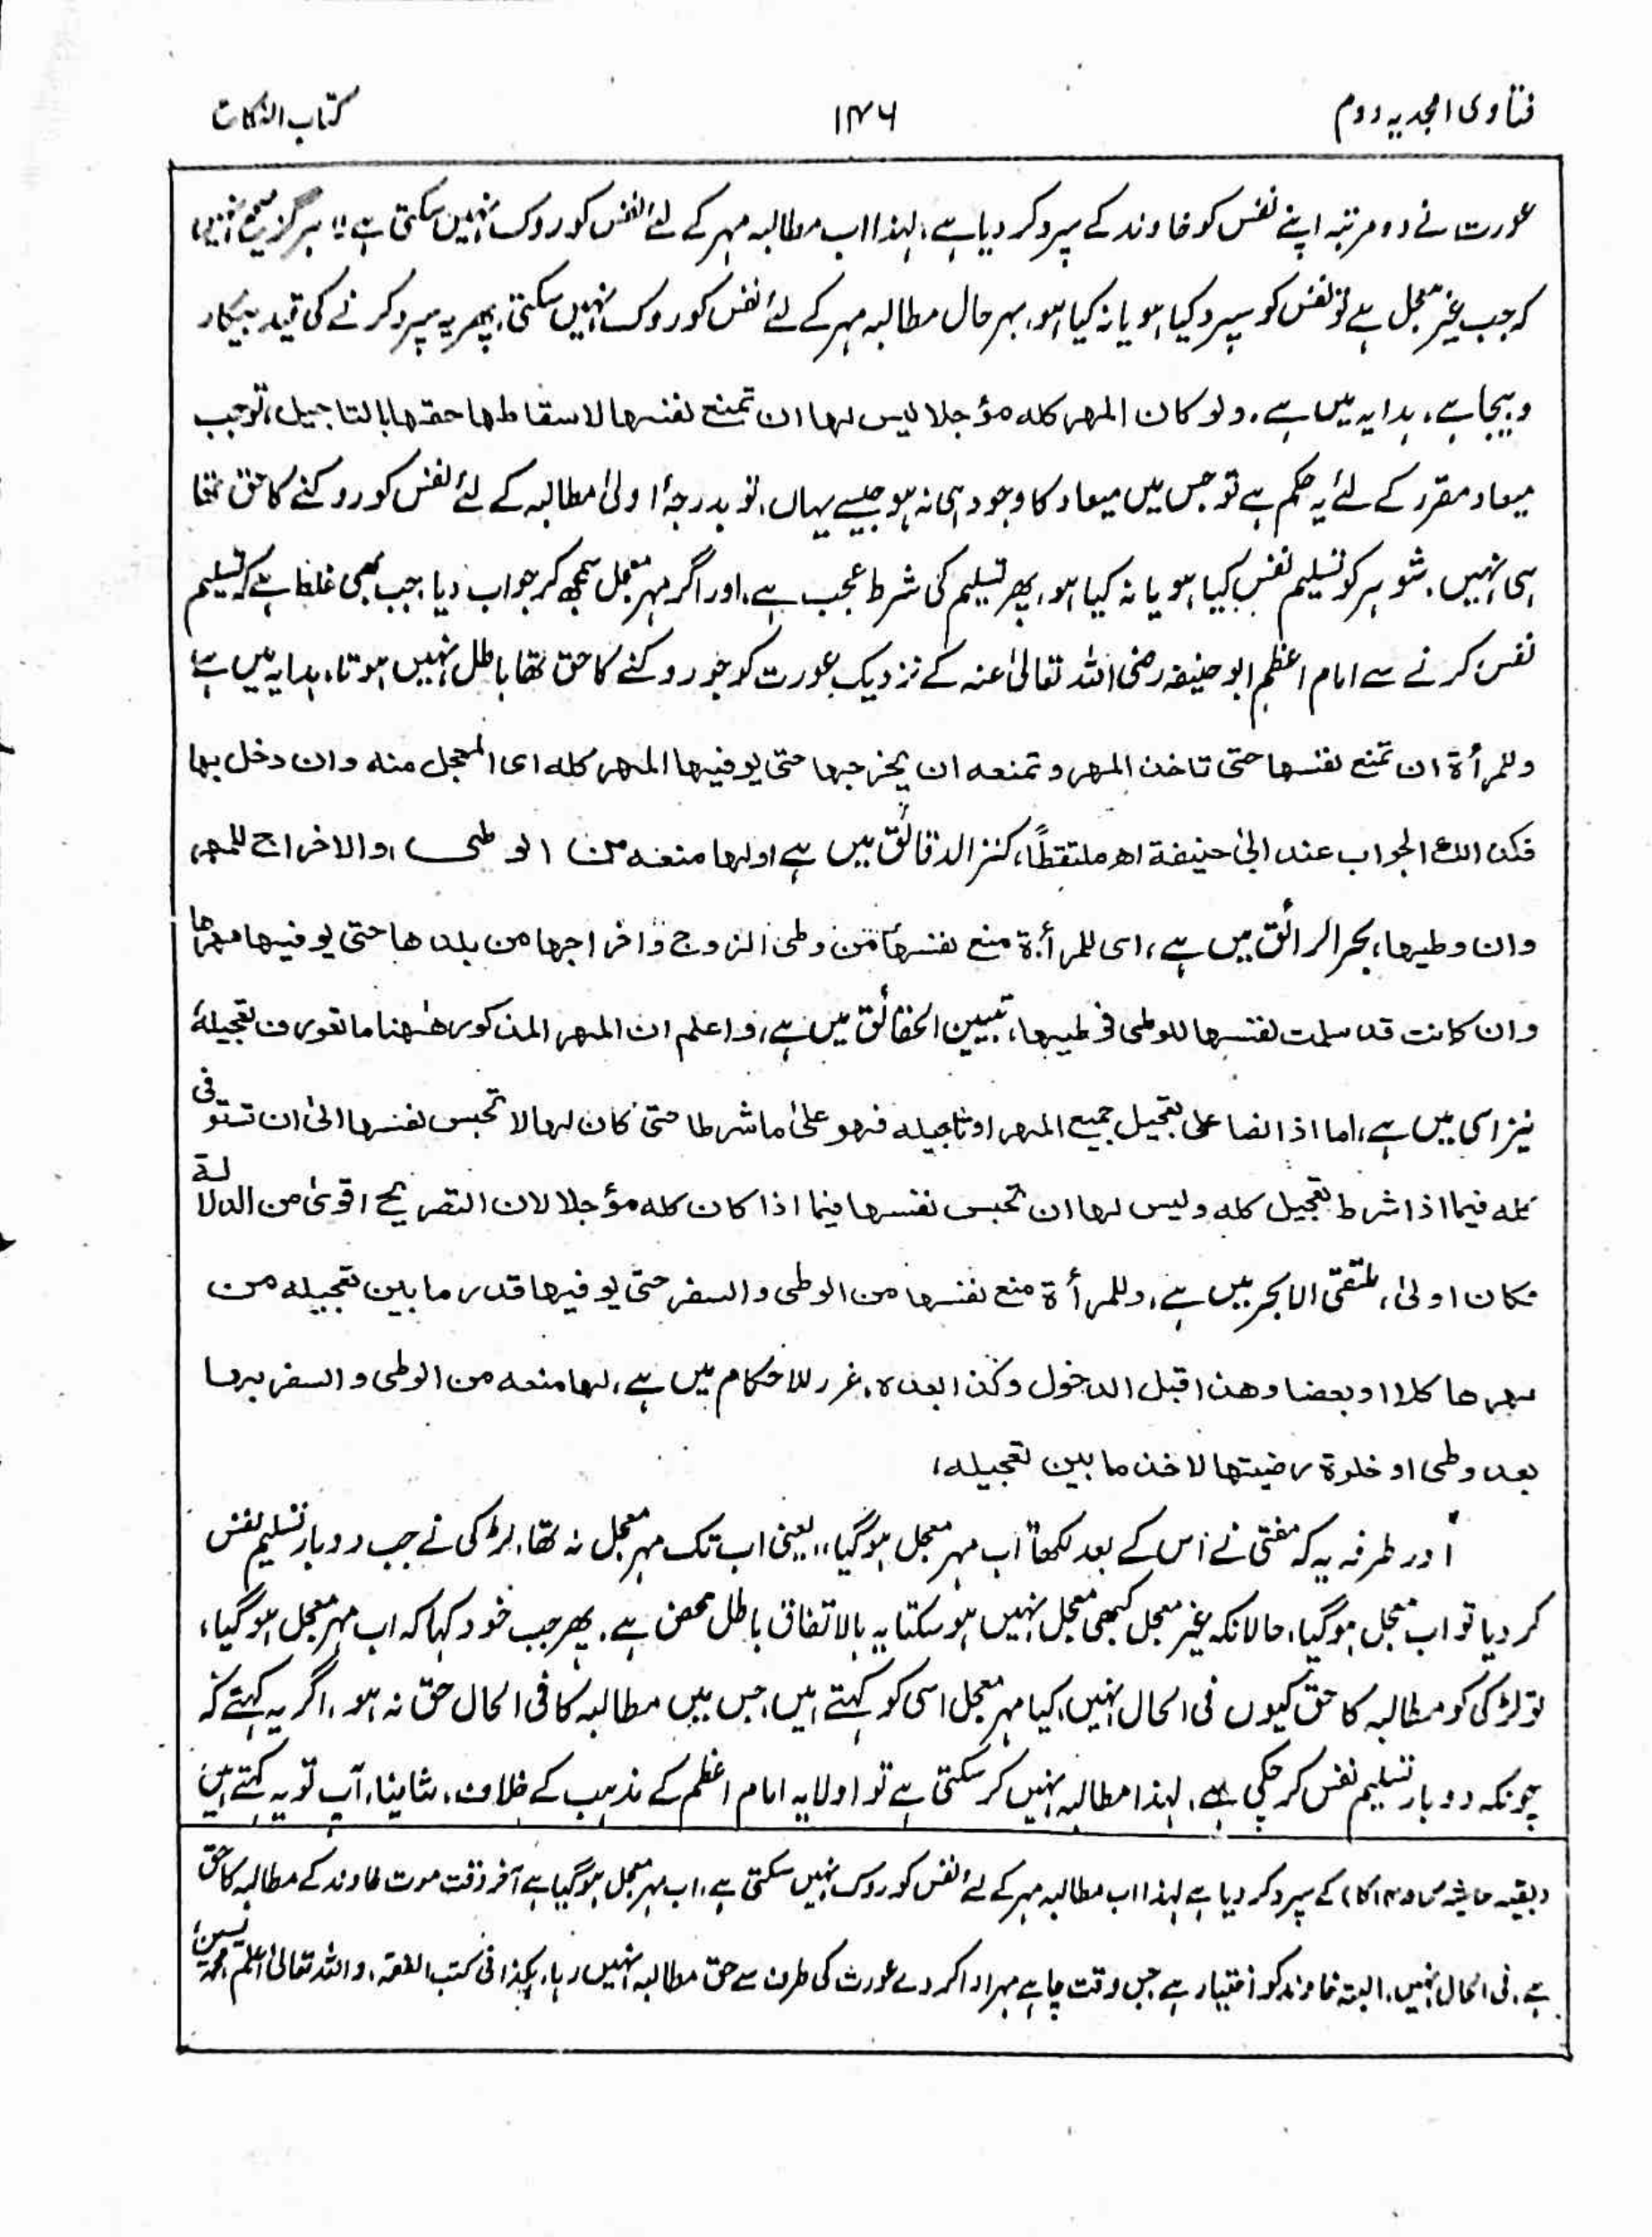 فتاوی امجدیہ دوم
۱۴۶
کتاب النکاح
عورت نے دو مرتبہ اپنے نفس کو خاوند کے سپرد کر دیا ہے، لہذا اب مطالبہ مہر کے لئے نفس کو روک نہیں سکتی ہے" ہرگز صحیح نہیں
کہ جب غیر معجل ہے تو نفس کو سپرد کیا ہو یا نہ کیا ہو، بہر حال مطالبہ مہر کے لئے نفس کو روک نہیں سکتی، پھر یہ سپرد کرنے کی قید بیکار
و بیجا ہے، ہدایہ میں ہے۔ ولو کان المهر کله مؤجلا لیس لها ان تمنع نفسها لاسقاطها حقها بالتاجیل، تو جب
میعاد مقرر کے لئے یہ حکم ہے تو جس میں میعاد کا وجود ہی نہ ہو جیسے یہاں، تو بدرجۂ اولیٰ مطالبہ کے لئے نفس کو روکنے کا حق تھا
ہی نہیں، شوہر کو تسلیم نفس کیا ہو یا نہ کیا ہو، پھر تسلیم کی شرط عجب ہے، اور اگر مہر معجل سمجھ کر جواب دیا جب بھی غلط ہے کہ تسلیم
نفس کرنے سے امام اعظم ابو حنیفہ رضی اللہ تعالیٰ عنہ کے نزدیک عورت کو جو روکنے کا حق تھا باطل نہیں ہوتا، ہدایہ میں ہے
وللمرأة ان تمنع نفسها حتی تاخذ المهر و تمنعه ان یخرجها حتی یوفیها المهر کله ای المعجل منه وان دخل بها
فکذالك الجواب عند ابی حنیفة اھ ملتقطاً، کنز الدقائق میں ہے ولها منعه من الوطی والاخراج للمهر
وان وطیها، بحر الرائق میں ہے، ای للمرأة منع نفسها من وطی الزوج واخراجها من بلدها حتی یوفیها مهرها
وان کانت قد سلمت نفسها للوطی فوطیها، تبیین الحقائق میں ہے، واعلم ان المهر المذکور ههنا ما تعورف تعجیله
نیز اسی میں ہے، اما اذا نصا علی تعجیل جمیع المهر او تاجیله فهو علیٰ ما شرطا حتی کان لها لا تحبس نفسها الیٰ ان تستوفی
کله فیما اذا شرط تعجیل کله ولیس لها ان تحبس نفسها فیما اذا کان کله مؤجلا لان التصریح اقویٰ من الدلالة
فکان اولیٰ، ملتقی الابحر میں ہے، وللمرأة منع نفسها من الوطی والسفر حتی یوفیها قدر ما بین تعجیله من
مهرها کلا او بعضا وهذا قبل الدخول وکذا بعده، غرر الاحکام میں ہے، لها منعه من الوطی والسفر بها
بعد وطی او خلوة رضیتها لاخذ ما بین تعجیله،
اور طرفہ یہ کہ مفتی نے اس کے بعد لکھا "اب مہر معجل ہوگیا،، یعنی اب تک مہر معجل نہ تھا، لڑکی نے جب دو بار تسلیم نفس
کر دیا تو اب معجل ہوگیا، حالانکہ غیر معجل کبھی معجل نہیں ہو سکتا یہ بالاتفاق باطل محض ہے، پھر جب خود کہا کہ اب مہر معجل ہوگیا،
تو لڑکی کو مطالبہ کا حق کیوں فی الحال نہیں، کیا مہر معجل اسی کو کہتے ہیں، جس میں مطالبہ کا فی الحال حق نہ ہو، اگر یہ کہتے کہ
چونکہ دو بار تسلیم نفس کر چکی ہے، لہذا مطالبہ نہیں کر سکتی ہے تو اولا یہ امام اعظم کے مذہب کے خلاف، ثانیا، آپ تو یہ کہتے ہیں
(بقیہ حاشیہ ص کا) کے سپرد کر دیا ہے لہذا اب مطالبہ مہر کے لئے نفس کو روک نہیں سکتی ہے، اب مہر معجل ہوگیا ہے آخر وقت موت خاوند کے مطالبہ کا حق
ہے، فی الحال نہیں، البتہ خاوند کو اختیار ہے جس وقت چاہے مہر ادا کر دے عورت کی طرف سے حق مطالبہ نہیں رہا، ہکذا فی کتب الفقہ، واللہ تعالیٰ اعلم محمد یسین